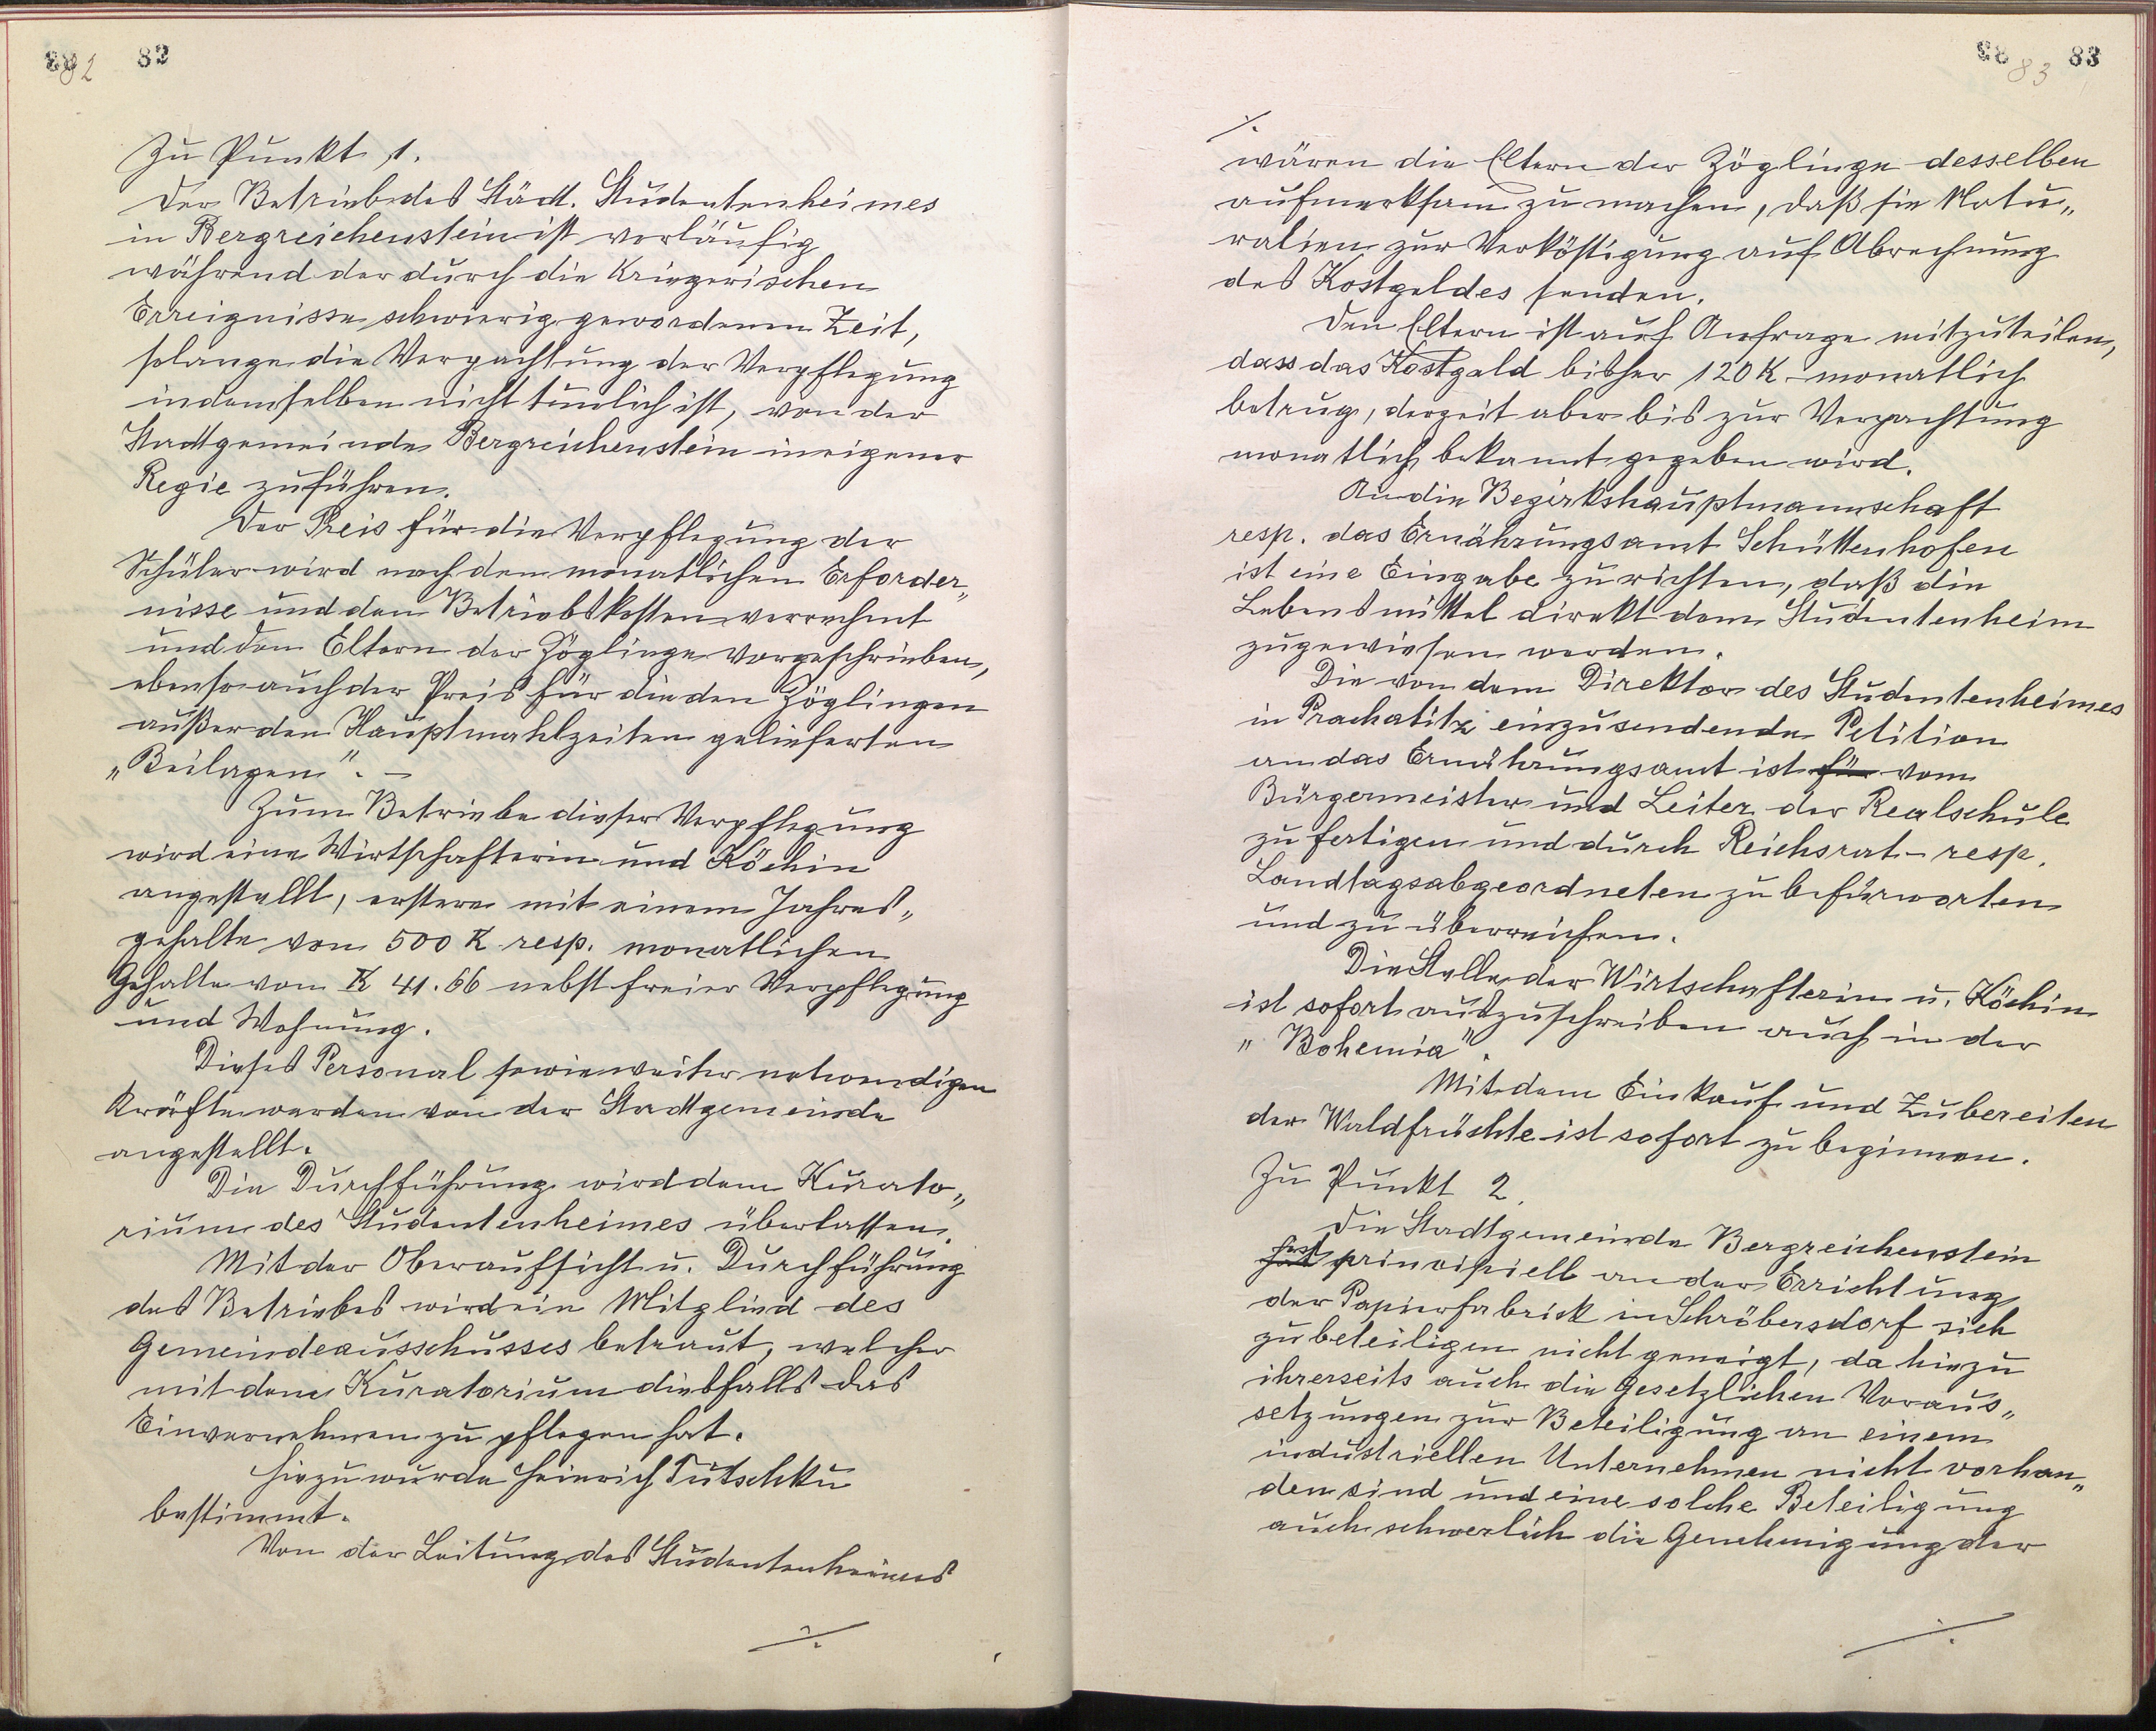 82 82
Zu Punkt 1.
Der Betrieb des Städt. Studentenheimes
in Bergreichenstein ist vorläufig
während der durch die kriegerischen
Erreignisse schwierig gewordenen Zeit,
solange die Verpachtung der Verpflegung
in demselben nicht tunlich ist, von der
Stadtgemeinde Bergreichenstein in eigener
Regie zu führen.
Der Preis für die Verpflegung der
Schüler wird nach den monatlichen Erforder„
nisse und den Betriebskosten verrechnet
und den Eltern der Zöglinge vorgeschrieben,
ebenso auch der Preis für die den Zöglingen
außer den Hauptmahlzeiten gelieferten
„Beilagen". –
Zum Betriebe dieser Verpflegung
wird eine Wirtschafterin und Köchin
angestellt, erstere mit einem Jahres„
gehalte von 500 K resp. monatlichen
Gehalte von K 41.66 nebst freier Verpflegung
und Wohnung.
Dieses Personal sowie weiter notwendigen
Kräfte werden von der Stadtgemeinde
angestellt.
Die Durchführung wird dem Kurato„
rium des Studentenheimes überlassen.
Mit der Oberaufsicht u. Durchführung
des Betriebes wird ein Mitglied des
Gemeindeausschusses betraut, welcher
mit dem Kuratorium diesfalls das
Einvernehmen zu pflegen hat.
Hiezu wurde Heinrich Tutschku
bestimmt.
Von der Leitung des Studentenheimes
./.
83 83
./.
wären die Eltern der Zöglinge desselben
aufmerksam zu machen, daß sie Natu„
ralien zur Verköstigung auf Abrechnung
des Kostgeldes senden.
Den Eltern ist auf Anfrage mitzuteilen,
dass das Kostgeld bisher 120 K monatlich
betrug, derzeit aber bis zur Verpachtung
monatlich bekannt gegeben wird.
An die Bezirkshauptmannschaft
resp. das Ernährungsamt Schüttenhofen
ist eine Eingabe zu richten, daß die
Lebensmittel direkt dem Studentenheim
zugewiesen werden.
Die von dem Direktor des Studentenheimes
in Prachatitz einzusendende Petition
an das Ernährungsamt ist für vom
Bürgermeister und Leiter der Realschule
zu fertigen und durch Reichsrat- resp.
Landtagsabgeordneten zu befürworten
und zu überreichen.
Die Stelle der Wirtschafterin u. Köchin
ist sofort auszuschreiben auch in der
„Bohemia".
Mit dem Einkauf und Zubereiten
der Waldfrüchte ist sofort zu beginnen.
Zu Punkt 2.
Die Stadtgemeinde Bergreichenstein
ist principiell an der Errichtung
der Papierfabrick in Schröbersdorf sich
zu beteiligen nicht geneigt, da hiezu
ihrerseits auch die gesetzlichen Voraus„
setzungen zur Beteiligung an einem
industriellen Unternehmen nicht vorhan„
den sind und eine solche Beteiligung
auch schwerlich die Genehmigung der
./.